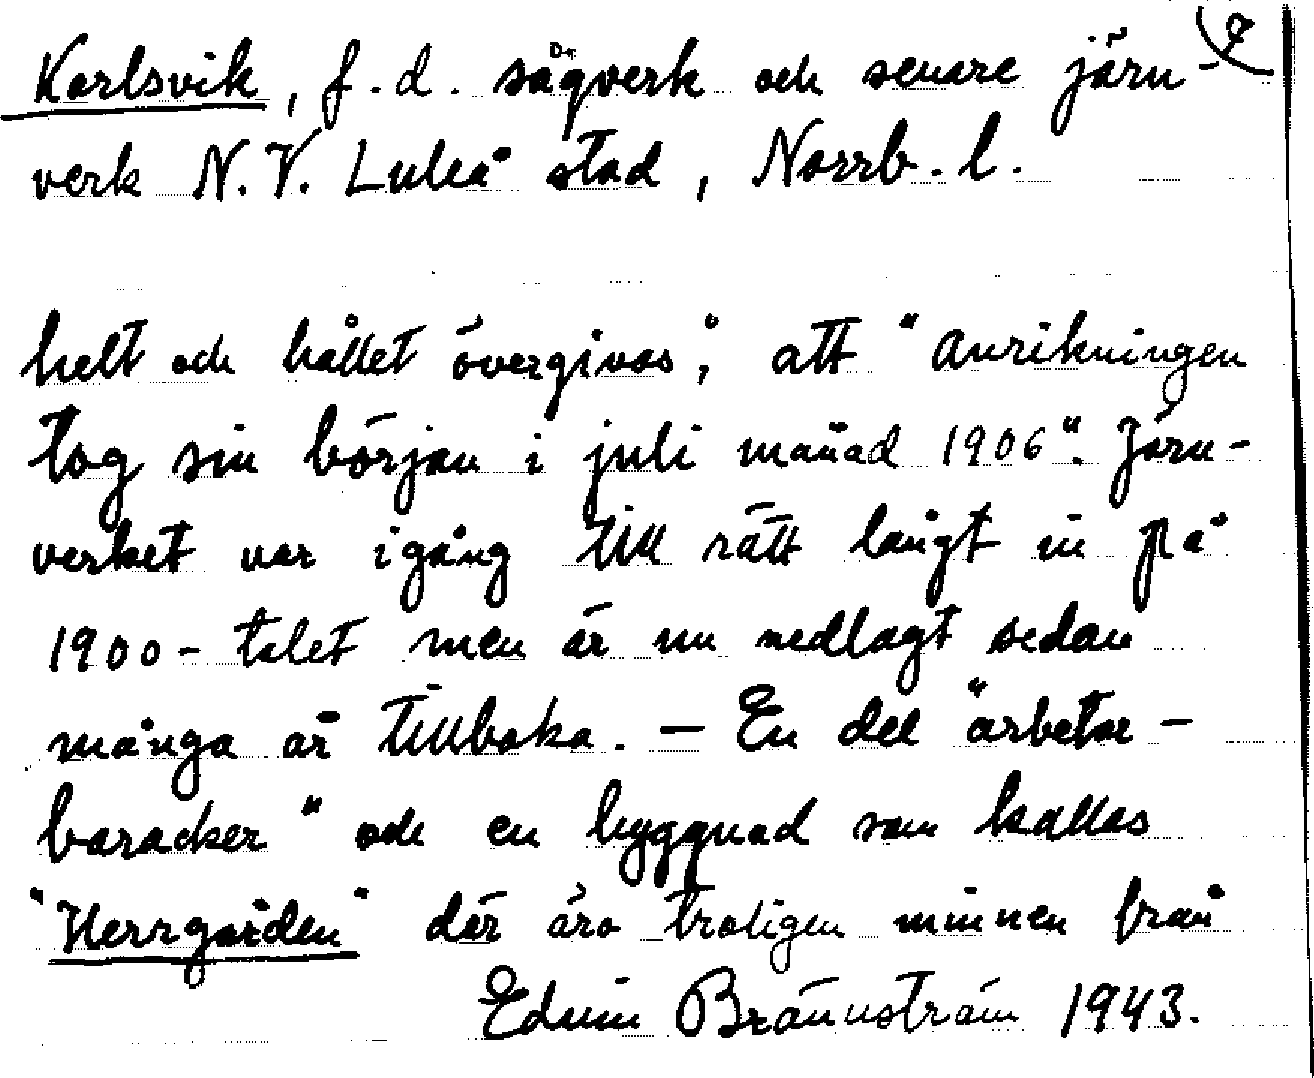 7
Karlsvik, f.d. sågverk och senare järn-
verk N.V. Luleå stad, Norrb. l.
helt och hållet övergivas", att "anrikningen
tog sin början i juli månad 1906". Järn-
verket var igång till rätt långt in på
1900-talet men är nu nedlagt sedan
många år tillbaka. — En del "arbetar-
baracker" och en byggnad som kallas
"Herrgården" där äro troligen minnen från
Edvin Brännström 1943.